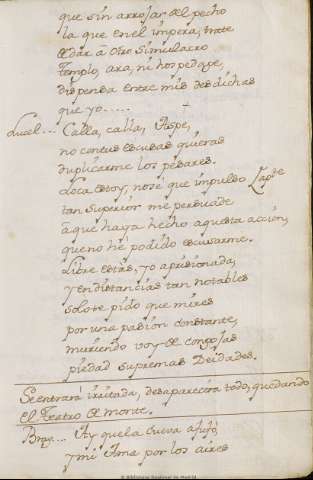 que sin arrojar del pecho
la que en el impera, trate
de dar à otro simulacro
templo, ara, ni hospedage,
dispensa entre mis desdichas
que yo.....
Lucel... Calla, calla, Aspe,
no con tus escusas quieras
duplicarme los pesares.
Loca estoy, no sé que impulso
tan superior me persuade
à que haya hecho aquesta acción,
que no he podido escusarme.
Libre estàs, yo aprisionada,
y en distancias tan notables
solo te pido que mires
por una pasion constante,
muriendo voy de congojas
piedad supremas Deidades.
Se entrará irritada, desaparecerá todo, quedando
el Teatro de monte.
Bru... Ay que la Cueva afufó,
y mi Ama por los aires
Biblioteca Nacional de Madrid